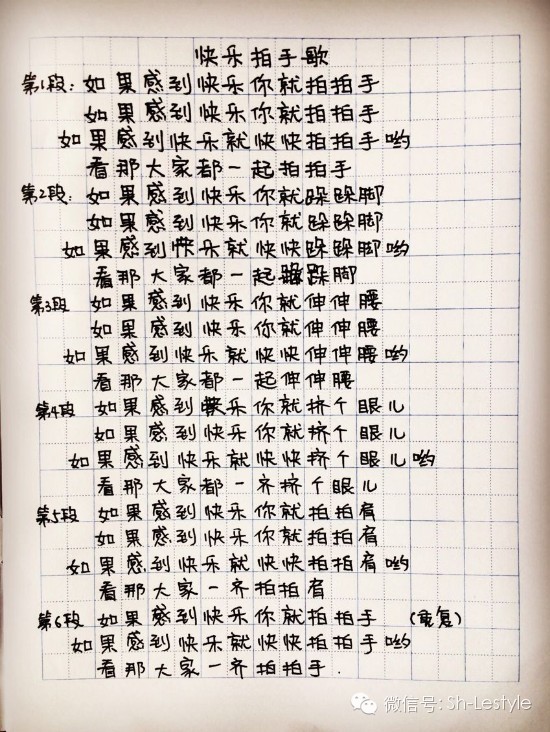 快乐拍手歌
第1段：如果感到快乐你就拍拍手
如果感到快乐你就拍拍手
如果感到快乐就快快拍拍手哟
看那大家都一起拍拍手
第2段：如果感到快乐你就跺跺脚
如果感到快乐你就跺跺脚
如果感到快乐就快快跺跺脚哟
看那大家都一起跺跺脚
第3段 如果感到快乐你就伸伸腰
如果感到快乐你就伸伸腰
如果感到快乐就快快伸伸腰哟
看那大家都一起伸伸腰
第4段 如果感到快乐你就挤个眼儿
如果感到快乐你就挤个眼儿
如果感到快乐就快快挤个眼儿哟
看那大家都一齐挤个眼儿
第5段 如果感到快乐你就拍拍肩
如果感到快乐你就拍拍肩
如果感到快乐就快快拍拍肩哟
看那大家一齐拍拍肩
第6段 如果感到快乐你就拍拍手 (重复)
如果感到快乐就快快拍拍手哟
看那大家一齐拍拍手.
微信号: Sh-Lestyle